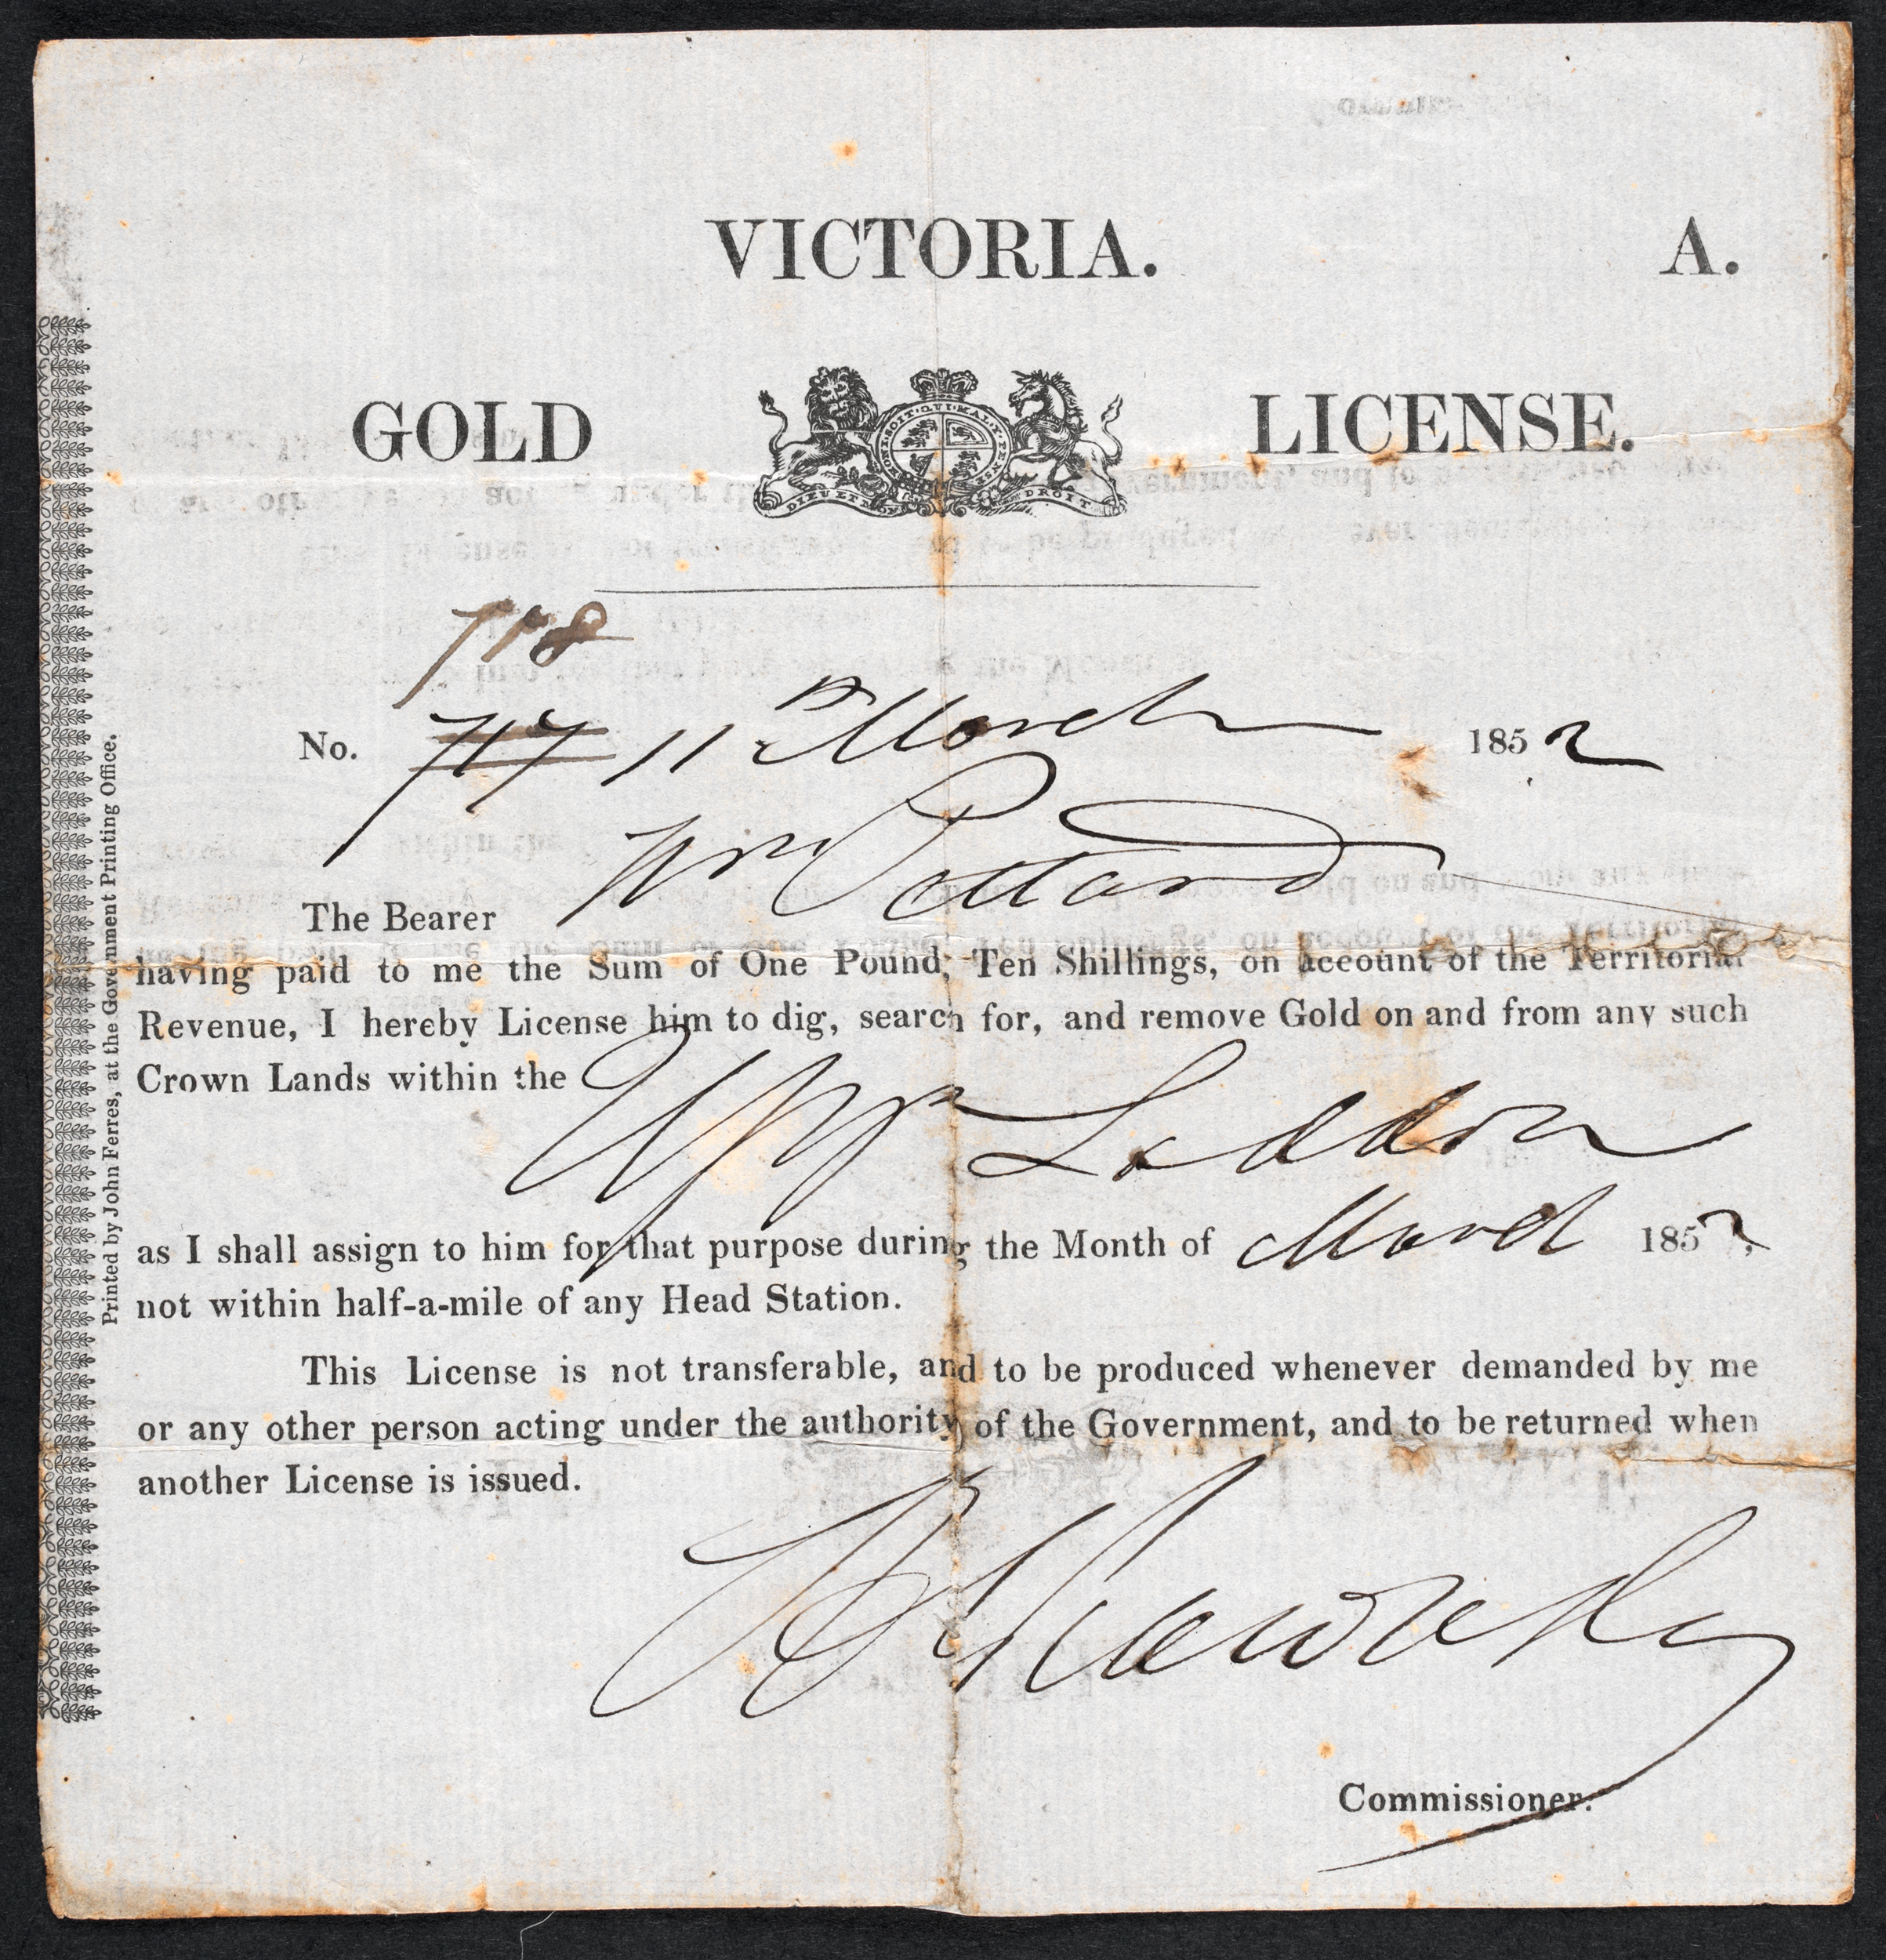 VICTORIA. A.
GOLD LICENSE.
HONI·SOIT·QUI·MAL·Y·PENSE
DIEU ET MON DROIT
718
No. 717 11th March 1852
The Bearer Wm Pottard
having paid to me the Sum of One Pound, Ten Shillings, on account of the Territorial
Revenue, I hereby License him to dig, search for, and remove Gold on and from any such
Crown Lands within the
Uppr Loddon
as I shall assign to him for that purpose during the Month of March 1852,
not within half-a-mile of any Head Station.
This License is not transferable, and to be produced whenever demanded by me
or any other person acting under the authority of the Government, and to be returned when
another License is issued.
Commissioner.
Printed by John Ferres, at the Government Printing Office.